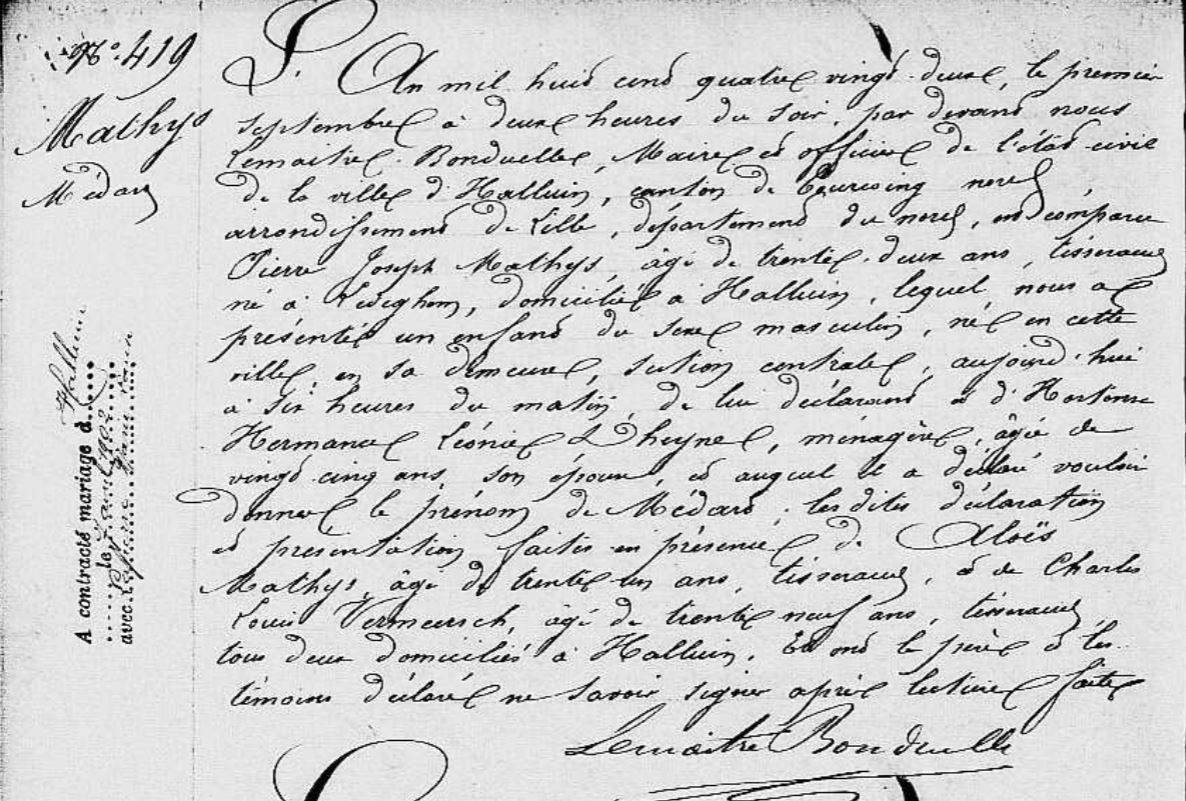 No. 419
Mathys
Médard
L'An mil huit cent quatre vingt-deux, le premier
septembre à deux heures du soir, par devant nous
Lemaitre-Bonduelle, Maire et officier de l'état-civil
de la ville d'Halluin, canton de Tourcoing nord,
arrondissement de Lille, département du nord, est comparu
Pierre Joseph Mathys, âgé de trente-deux ans, tisserand
né à Ledeghem, domicilié à Halluin, lequel nous a
présenté un enfant du sexe masculin, né en cette
ville, en sa demeure, section centrale, aujourd'hui
à six heures du matin, de lui déclarant et d'Hortense
Hermance Léonie Dheyne, ménagère, âgée de
vingt-cinq ans, son épouse, et auquel il a déclaré vouloir
donner le prénom de Médard; les dites déclaration
et présentation faites en présence de Aloïs
Mathys, âgé de trente-un ans, tisserand, et de Charles
Louis Vermeersch, âgé de trente neuf ans, tisserand
tous deux domiciliés à Halluin. Et ont le père et les
témoins déclaré ne savoir signer après lecture faite
Lemaitre Bonduelle
A contracté mariage à Halluin
le
avec